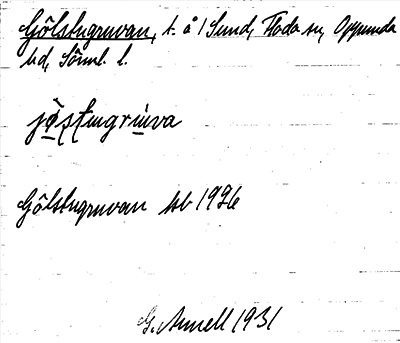 Gölstugruvan, t. å / Sund, Floda sn, Oppunda
hd, Sörml. l.
jö̀stugrùva
Gölstugruvan hb 1926
G. Annell 1931